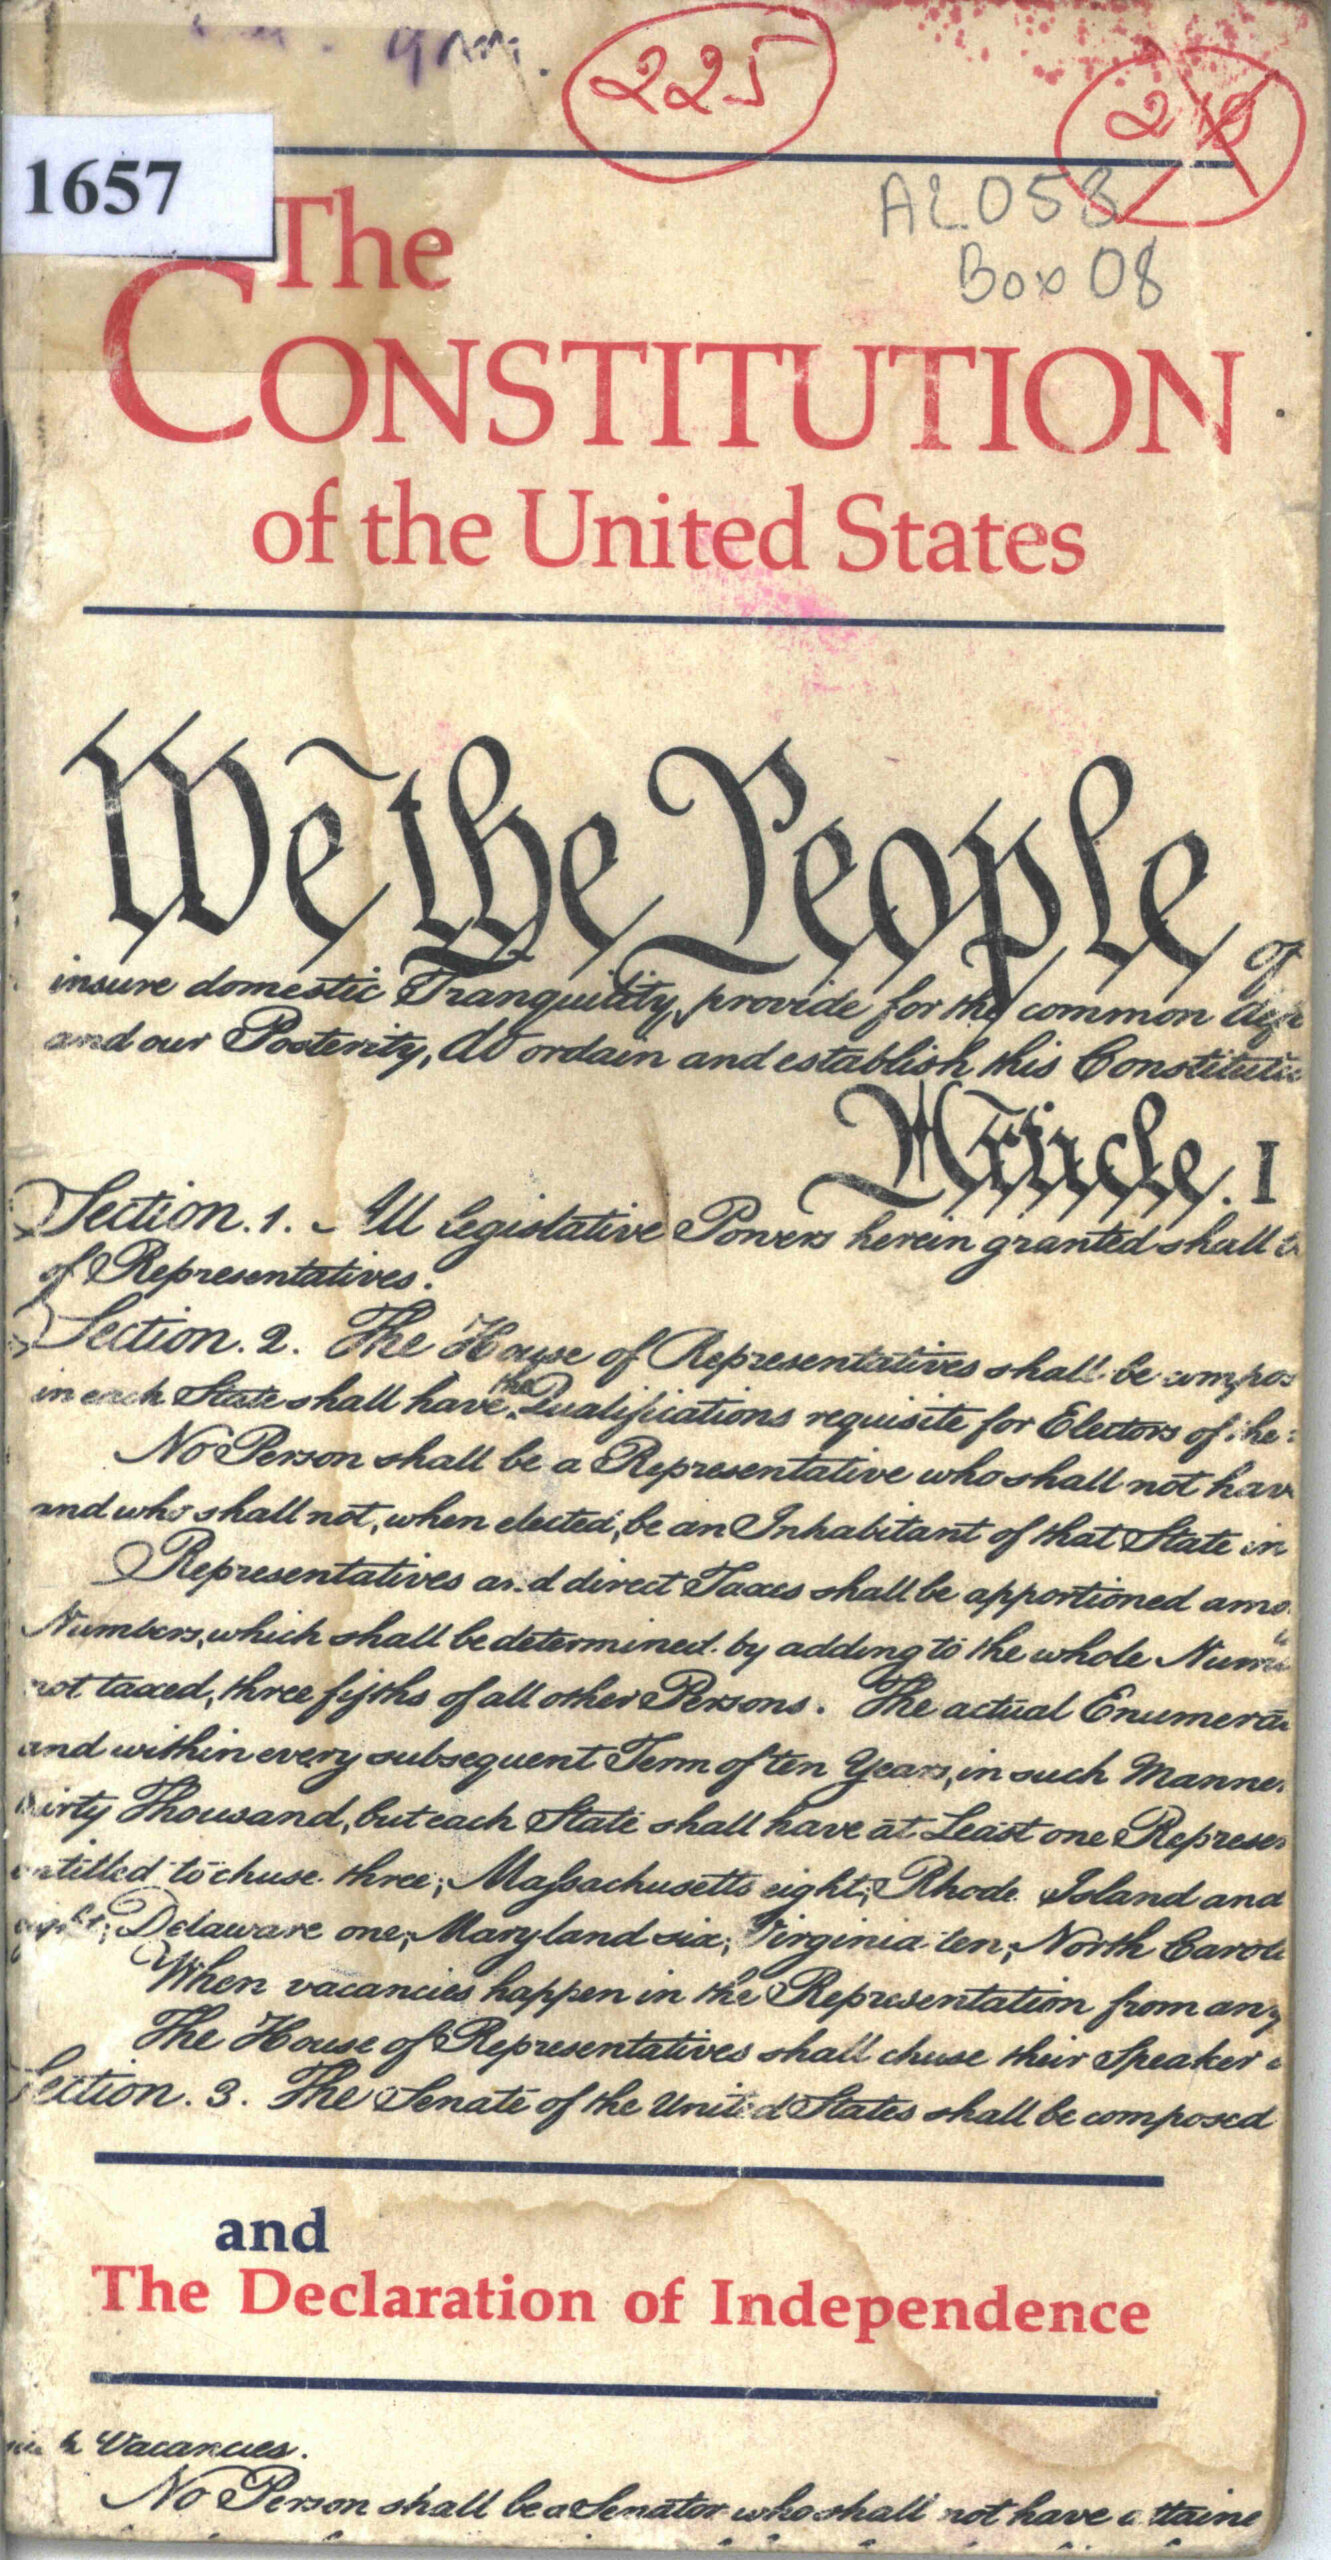 225
1657
AL053
Box 08
The
CONSTITUTION
of the United States
We the People of
insure domestic Tranquility, provide for the common
and our Posterity, do ordain and establish this
Article. I
Section. 1. All legislative Powers herein granted shall
of Representatives.
Section. 2. The House of Representatives shall be compos
in each State shall have the Qualifications requisite for Electors of the
No Person shall be a Representative who shall not hav
and who shall not, when elected, be an Inhabitant of that State in
Representatives and direct Taxes shall be apportioned amo
Numbers, which shall be determined by adding to the whole
not taxed, three fifths of all other Persons. The actual
and within every subsequent Term of ten Years, in such Manner
thirty Thousand, but each State shall have at Least one Represen
entitled to chuse three, Massachusetts eight, Rhode Island and
eight, Delaware one, Maryland six, Virginia ten, North Caroli
When vacancies happen in the Representation from any
The House of Representatives shall chuse their Speaker
Section. 3. The Senate of the United States shall be composed
and
The Declaration of Independence
Vacancies.
No Person shall be a Senator who shall not have attaine